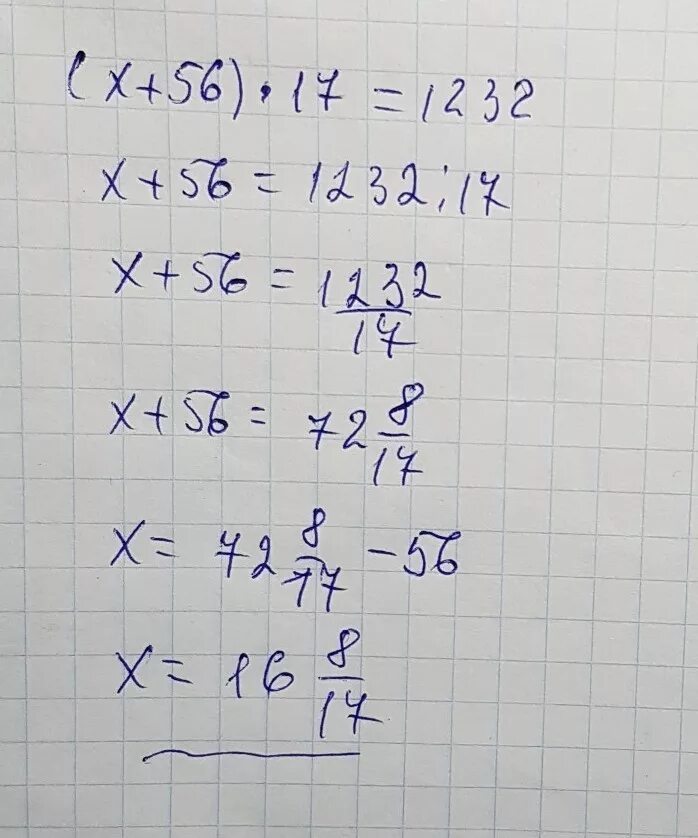 (x+56)·17=1232
x+56=1232:17
x+56=1232/17
x+56=72 8/17
x=72 8/17-56
x=16 8/17